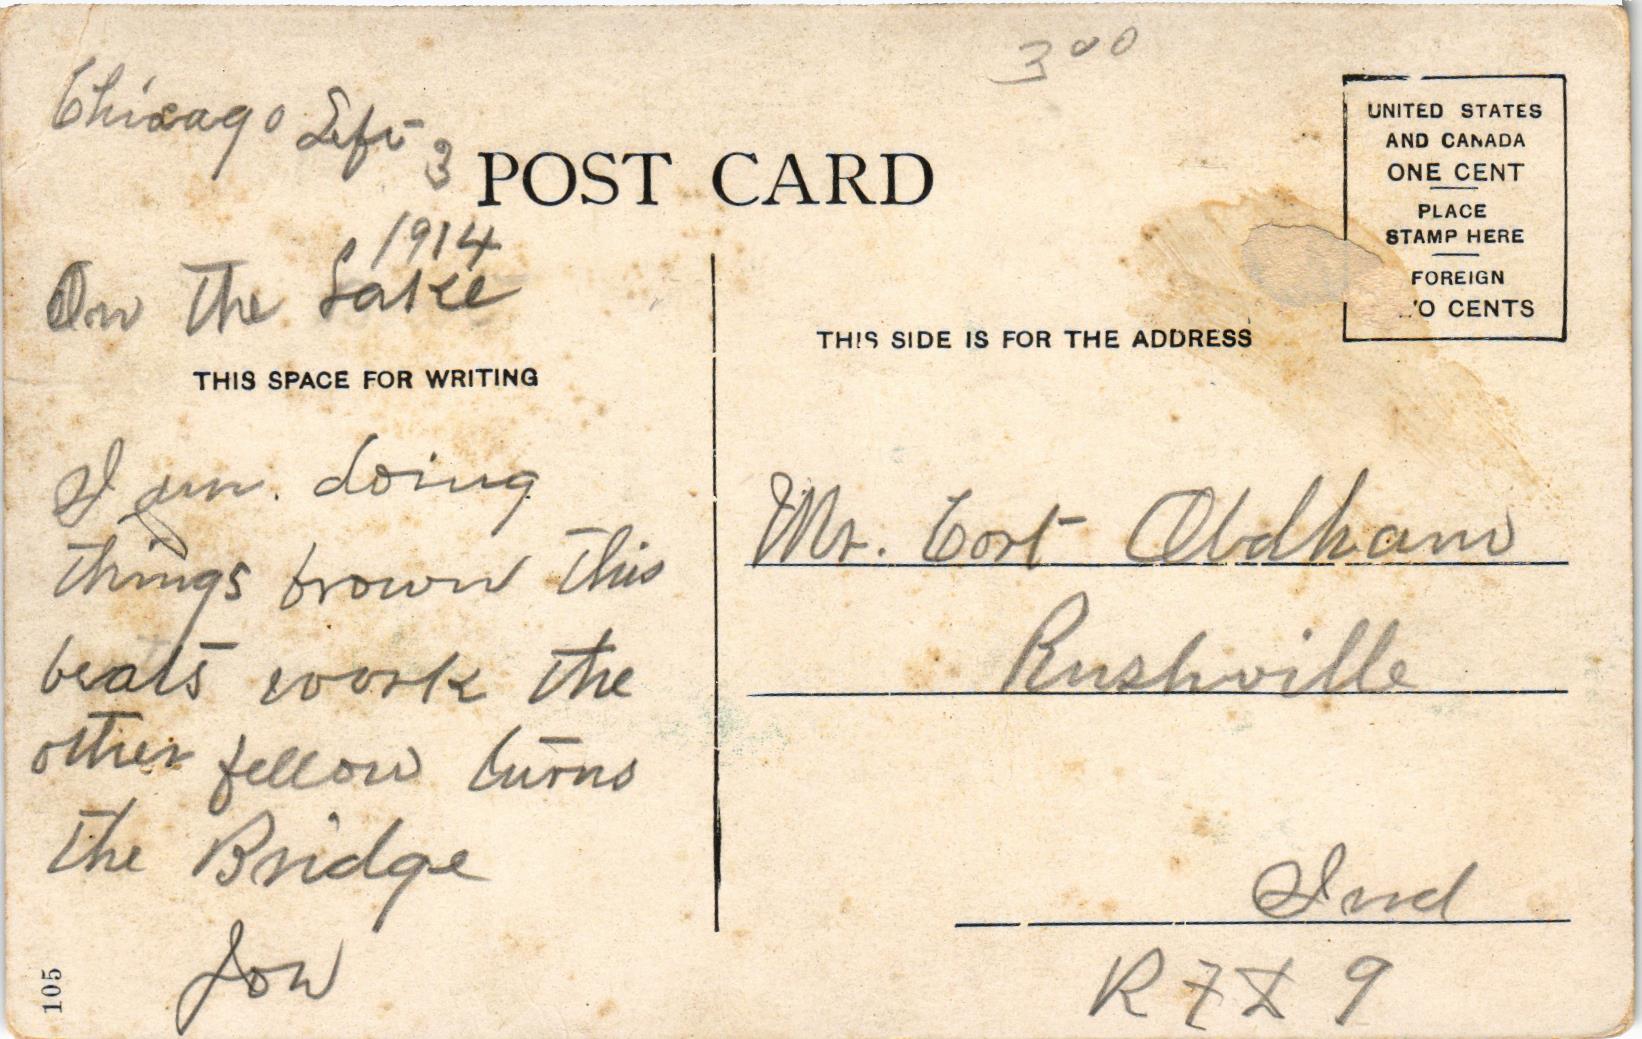 300
Chicago Sept 3
1914
On the Lake
POST CARD
UNITED STATES
AND CANADA
ONE CENT
PLACE
STAMP HERE
FOREIGN
O CENTS
THIS SPACE FOR WRITING
THIS SIDE IS FOR THE ADDRESS
I am. doing
things brown this
beats work the
other fellow turns
the Bridge
105
Mr. Cort Oldham
Rushville
Ind
R 9